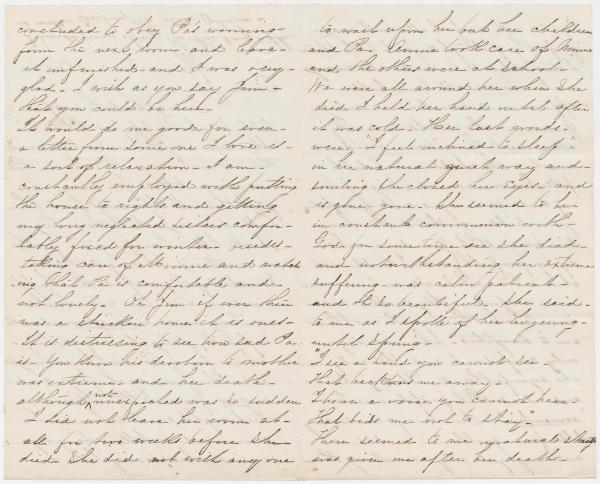 concluded to obey Pa's warning -
from the next room and leave -
it unfinished - and I was very -
glad. I wish as you say Jim -
that you could be here -
It would do me good, for even -
a letter from some one I love is -
a sort of relaxation - I am -
constantly employed with putting
the house to rights and getting
my long neglected sisters comfor-
tably fixed for winter - besides -
taking care of Minnie and watch
ing that Pa is comfortable and -
not lonely. Oh Jim if ever there
was a stricken home it is ours -
It is distressing to see how sad Pa
is - You know his devotion to mother
was extreme - and her death -
although not unexpected was so sudden
I did not leave her room at -
all for two weeks before she
died She did not wish any one
to wait upon her but her children
and Pa. Annie took care of Minnie
and the others were at school -
We were all around her when she
died I held her hand until after
it was cold. Her last words -
were "I feel inclined to sleep" -
in her natural quiet way and -
smiling she closed her eyes - and
is gone - gone. She seemed to be -
in constant communion with -
God for sometime ere she died -
and notwithstanding her extreme
suffering - was calm patient -
and Oh so beautiful. She said -
to me as I spoke of her lingering -
until Spring -
"I see a hand you cannot see -
That beckons me away -
I hear a voice you cannot hear -
That bids me not to stay" -
There seemed to me a natural strength
was given me after her death -